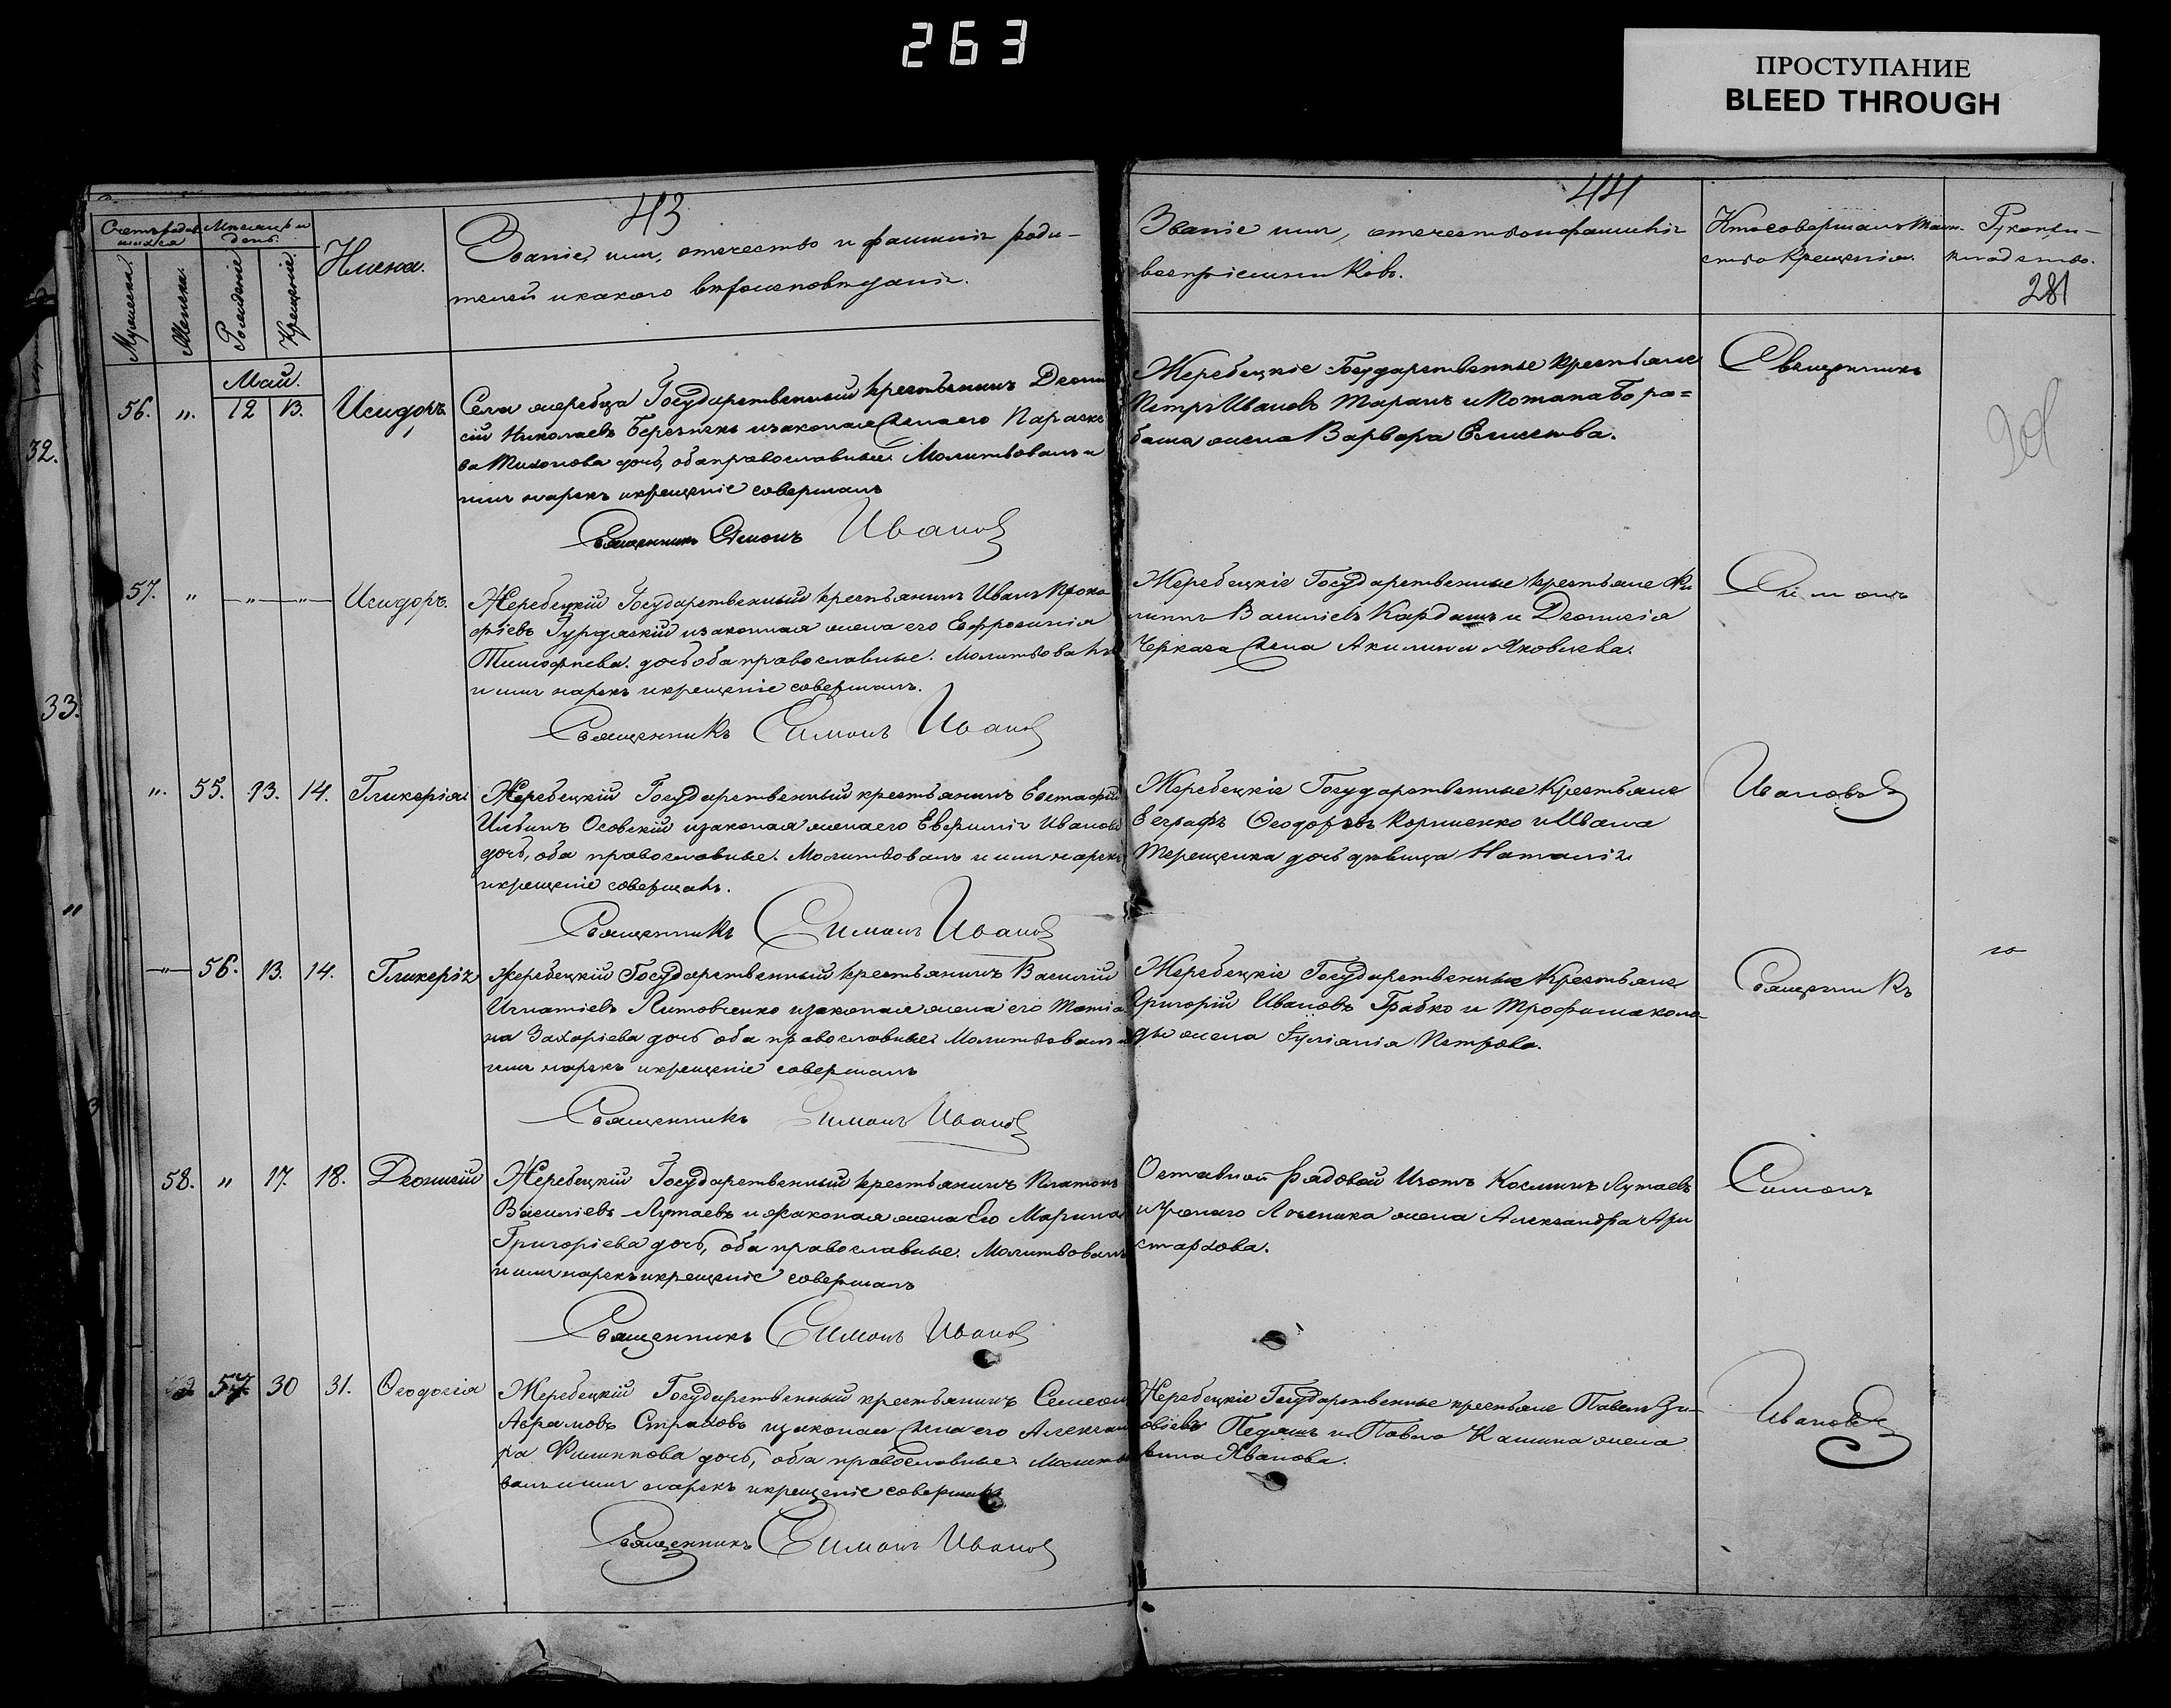 263
ПРОСТУПАНИЕ
BLEED THROUGH
43
44
Счетъ родив
шихся
Мѣсяцъ и
день.
Мужеска.
Женска.
Рожденіе
Крещеніе.
Имена.
Званіе, имя, отечество и фамилія роди-
телей и какого вѣроисповеданія.
Званіе имя, отечество и фамилія
воспріемниковъ.
Кто совершалъ таин-
ство крещенія.
Рукопри-
кладство.
281
32.
33.
Май.
56. „ 12 13. Исидоръ
Села жеребца Государственный крестьянинъ Деони
сій Николаевъ и законая жена его Параске
ва Тихонова дочь, оба православные. Молитвовалъ и
имя нарекъ и крещеніе совершалъ
Священникъ Симонъ Ивановъ
Жеребецкіе Государственные крестьяне
Петръ Ивановъ Таранъ и Потапа Бора=
баша жена Варвара Елисеева.
Священникъ
57. „ — „ — „ — Исидоръ.
Жеребецкій Государственный крестьянинъ Иванъ Проко
фіевъ и законная жена его Евфросинія
Тимофеева дочь оба православные. Молитвовалъ
и имя нарекъ и крещеніе совершалъ.
Священникъ Симонъ Ивановъ
Жеребецкіе Государственные крестьяне Фи
липпъ Василіевъ Кардашъ и Деонисія
Черкаса жена Акилина Яковлева.
Симонъ
„ 55. 13. 14. Гликерія
Жеребецкій Государственный крестьянинъ Евстафій
Ильинъ Осовскій и законая жена его Евфимія Иванова
дочь, оба православные. Молитвовалъ и имя нарекъ
и крещеніе совершалъ.
Священникъ Симонъ Ивановъ
Жеребецкіе Государственные Крестьяне
Еграфъ Ѳеодоровъ Корниенко и Ивана
Терещенка дочь девица Наталія
Ивановъ
— „ — 56. 13. 14. Гликерія
Жеребецкій Государственный крестьянинъ Василій
Игнатіевъ Литовченко и законая жена его Татіа
на Захаріева дочь оба православные. Молитвовалъ и
имя нарекъ и крещеніе совершалъ
Священникъ Симонъ Ивановъ
Жеребецкіе Государственные Крестьяне
Григорій Ивановъ Грабко и Трофима Коло
ды жена Іуліанія Петрова.
Священникъ
58. „ 17. 18. Деонисій
Жеребецкій Государственный крестьянинъ Платонъ
Василіевъ Лутаевъ и законая жена Его Марина
Григоріева дочь, оба православные. Молитвовалъ
и имя нарекъ и крещеніе совершалъ
Священникъ Симонъ Ивановъ
Оставной рядовой Изотъ Косминъ Лутаевъ
жена Александра Ари
стархова.
Симонъ
57. 30 31. Ѳеодосія
Жеребецкій Государственный крестьянинъ Семеонъ
Аврамовъ Страховъ и законая жена его Александ
ра Филиппова дочь, оба православные. Молитво
валъ и имя нарекъ и крещеніе совершалъ
Священникъ Симонъ Ивановъ
Жеребецкіе Государственные крестьяне Павелъ Зи-
овіевъ Педашъ и Павла Кашина жена
Иванова.
Ивановъ